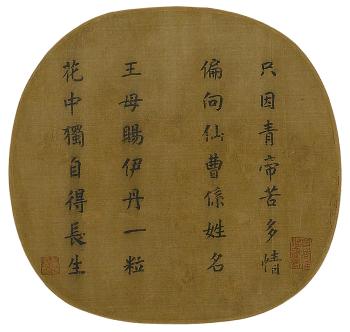 只因青帝苦多情
偏向仙曹係姓名
王母賜伊丹一粒
花中獨自得長生